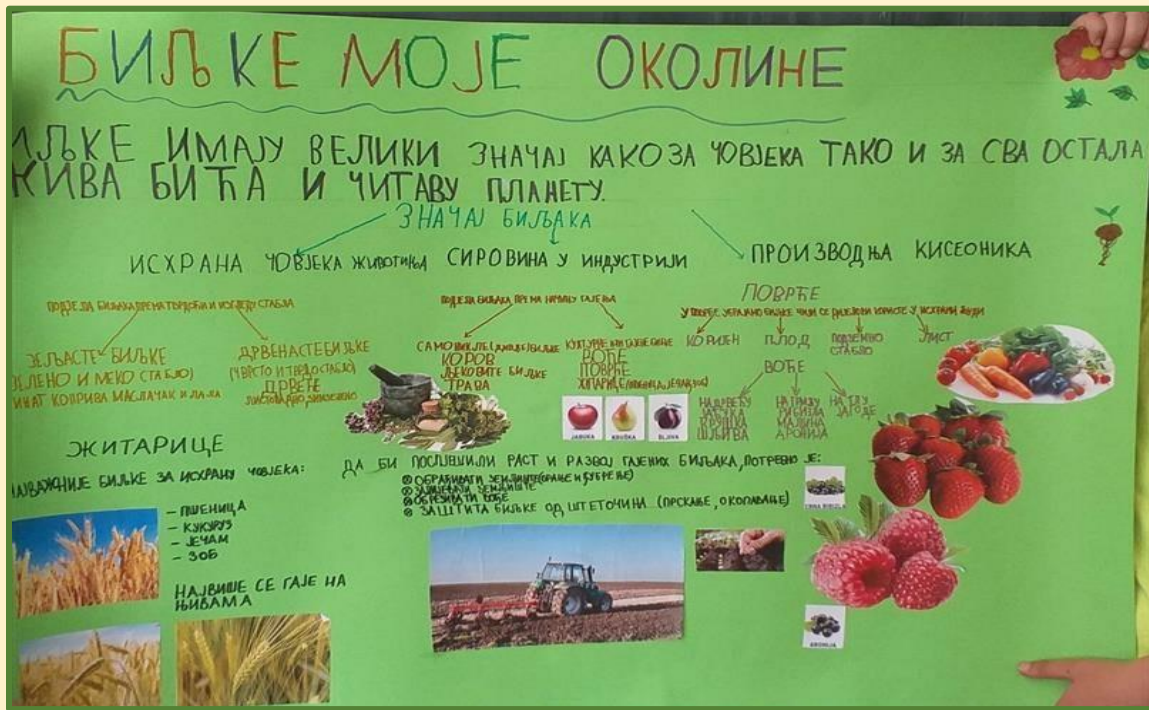 БИЉКЕ МОЈЕ ОКОЛИНЕ
ИЉКЕ ИМАЈУ ВЕЛИКИ ЗНАЧАЈ КАКО ЗА ЧОВЈЕКА ТАКО И ЗА СВА ОСТАЛА
ЖИВА БИЋА И ЧИТАВУ ПЛАНЕТУ.
ЗНАЧАЈ БИЉАКА
ИСХРАНА ЧОВЈЕКА ЖИВОТИЊА
СИРОВИНА У ИНДУСТРИЈИ
ПРОИЗВОДЊА КИСЕОНИКА
ПОДЈЕЛА БИЉАКА ПРЕМА ГРАЂИ И ИЗГЛЕДУ СТАБЛА
ЗЕЉАСТЕ БИЉКЕ
ЗЕЛЕНО И МЕКО СТАБЛО)
КОПРИВА МАСЛАЧАК И ЛАЛА
ДРВЕНАСТЕ БИЉКЕ
(ЧВРСТО И ТВРДО СТАБЛО)
ДРВЕЋЕ
ЛИСТОПАДНО, ЗИМЗЕЛЕНО
ПОДЈЕЛА БИЉАКА ПРЕМА НАЧИНУ ГАЈЕЊА
САМОНИКЛЕ (ДИВЉЕ) БИЉКЕ
КОРОВ
ЉЕКОВИТЕ БИЉКЕ
ТРАВА
КУЛТУРНЕ ИЛИ ГАЈЕНЕ БИЉКЕ
ВОЋЕ
ПОВРЋЕ
(ПШЕНИЦА, ЈЕЧАМ, ЗОБ)
JABUKA
KRUŠKA
ŠLJIVA
ПОВРЋЕ
У ПОВРЋЕ УБРАЈАМО БИЉКЕ ЧИЈИ СЕ ДИЈЕЛОВИ КОРИСТЕ У ИСХРАНИ ЉУДИ
КОРИЈЕН
ПЛОД
ПОДЗЕМНО
СТАБЛО
ЛИСТ
ВОЋЕ
НА ДРВЕЋУ
ЈАБУКА
КРУШКА
ШЉИВА
НА ГРМУ
РИБИЗЛА
МАЛИНА
АРОНИЈА
НА ТЛУ
ЈАГОДЕ
ЖИТАРИЦЕ
НАЈВАЖНИЈЕ БИЉКЕ ЗА ИСХРАНУ ЧОВЈЕКА:
– ПШЕНИЦА
– КУКУРУЗ
– ЈЕЧАМ
– ЗОБ
НАЈВИШЕ СЕ ГАЈЕ НА
ЊИВАМА
ДА БИ ПОСПЈЕШИЛИ РАСТ И РАЗВОЈ ГАЈЕНИХ БИЉАКА, ПОТРЕБНО ЈЕ:
ОБРАЂИВАТИ ЗЕМЉИШТЕ (ОРАЊЕ И ЂУБРЕЊЕ)
ЗЕМЉИШТЕ
ОБРЕЗИВАТИ ВОЋЕ
ЗАШТИТА БИЉКЕ ОД ШТЕТОЧИНА (ПРСКАЊЕ, ОКОПАВАЊЕ)
CRNA RIBIZLA
ARONIJA